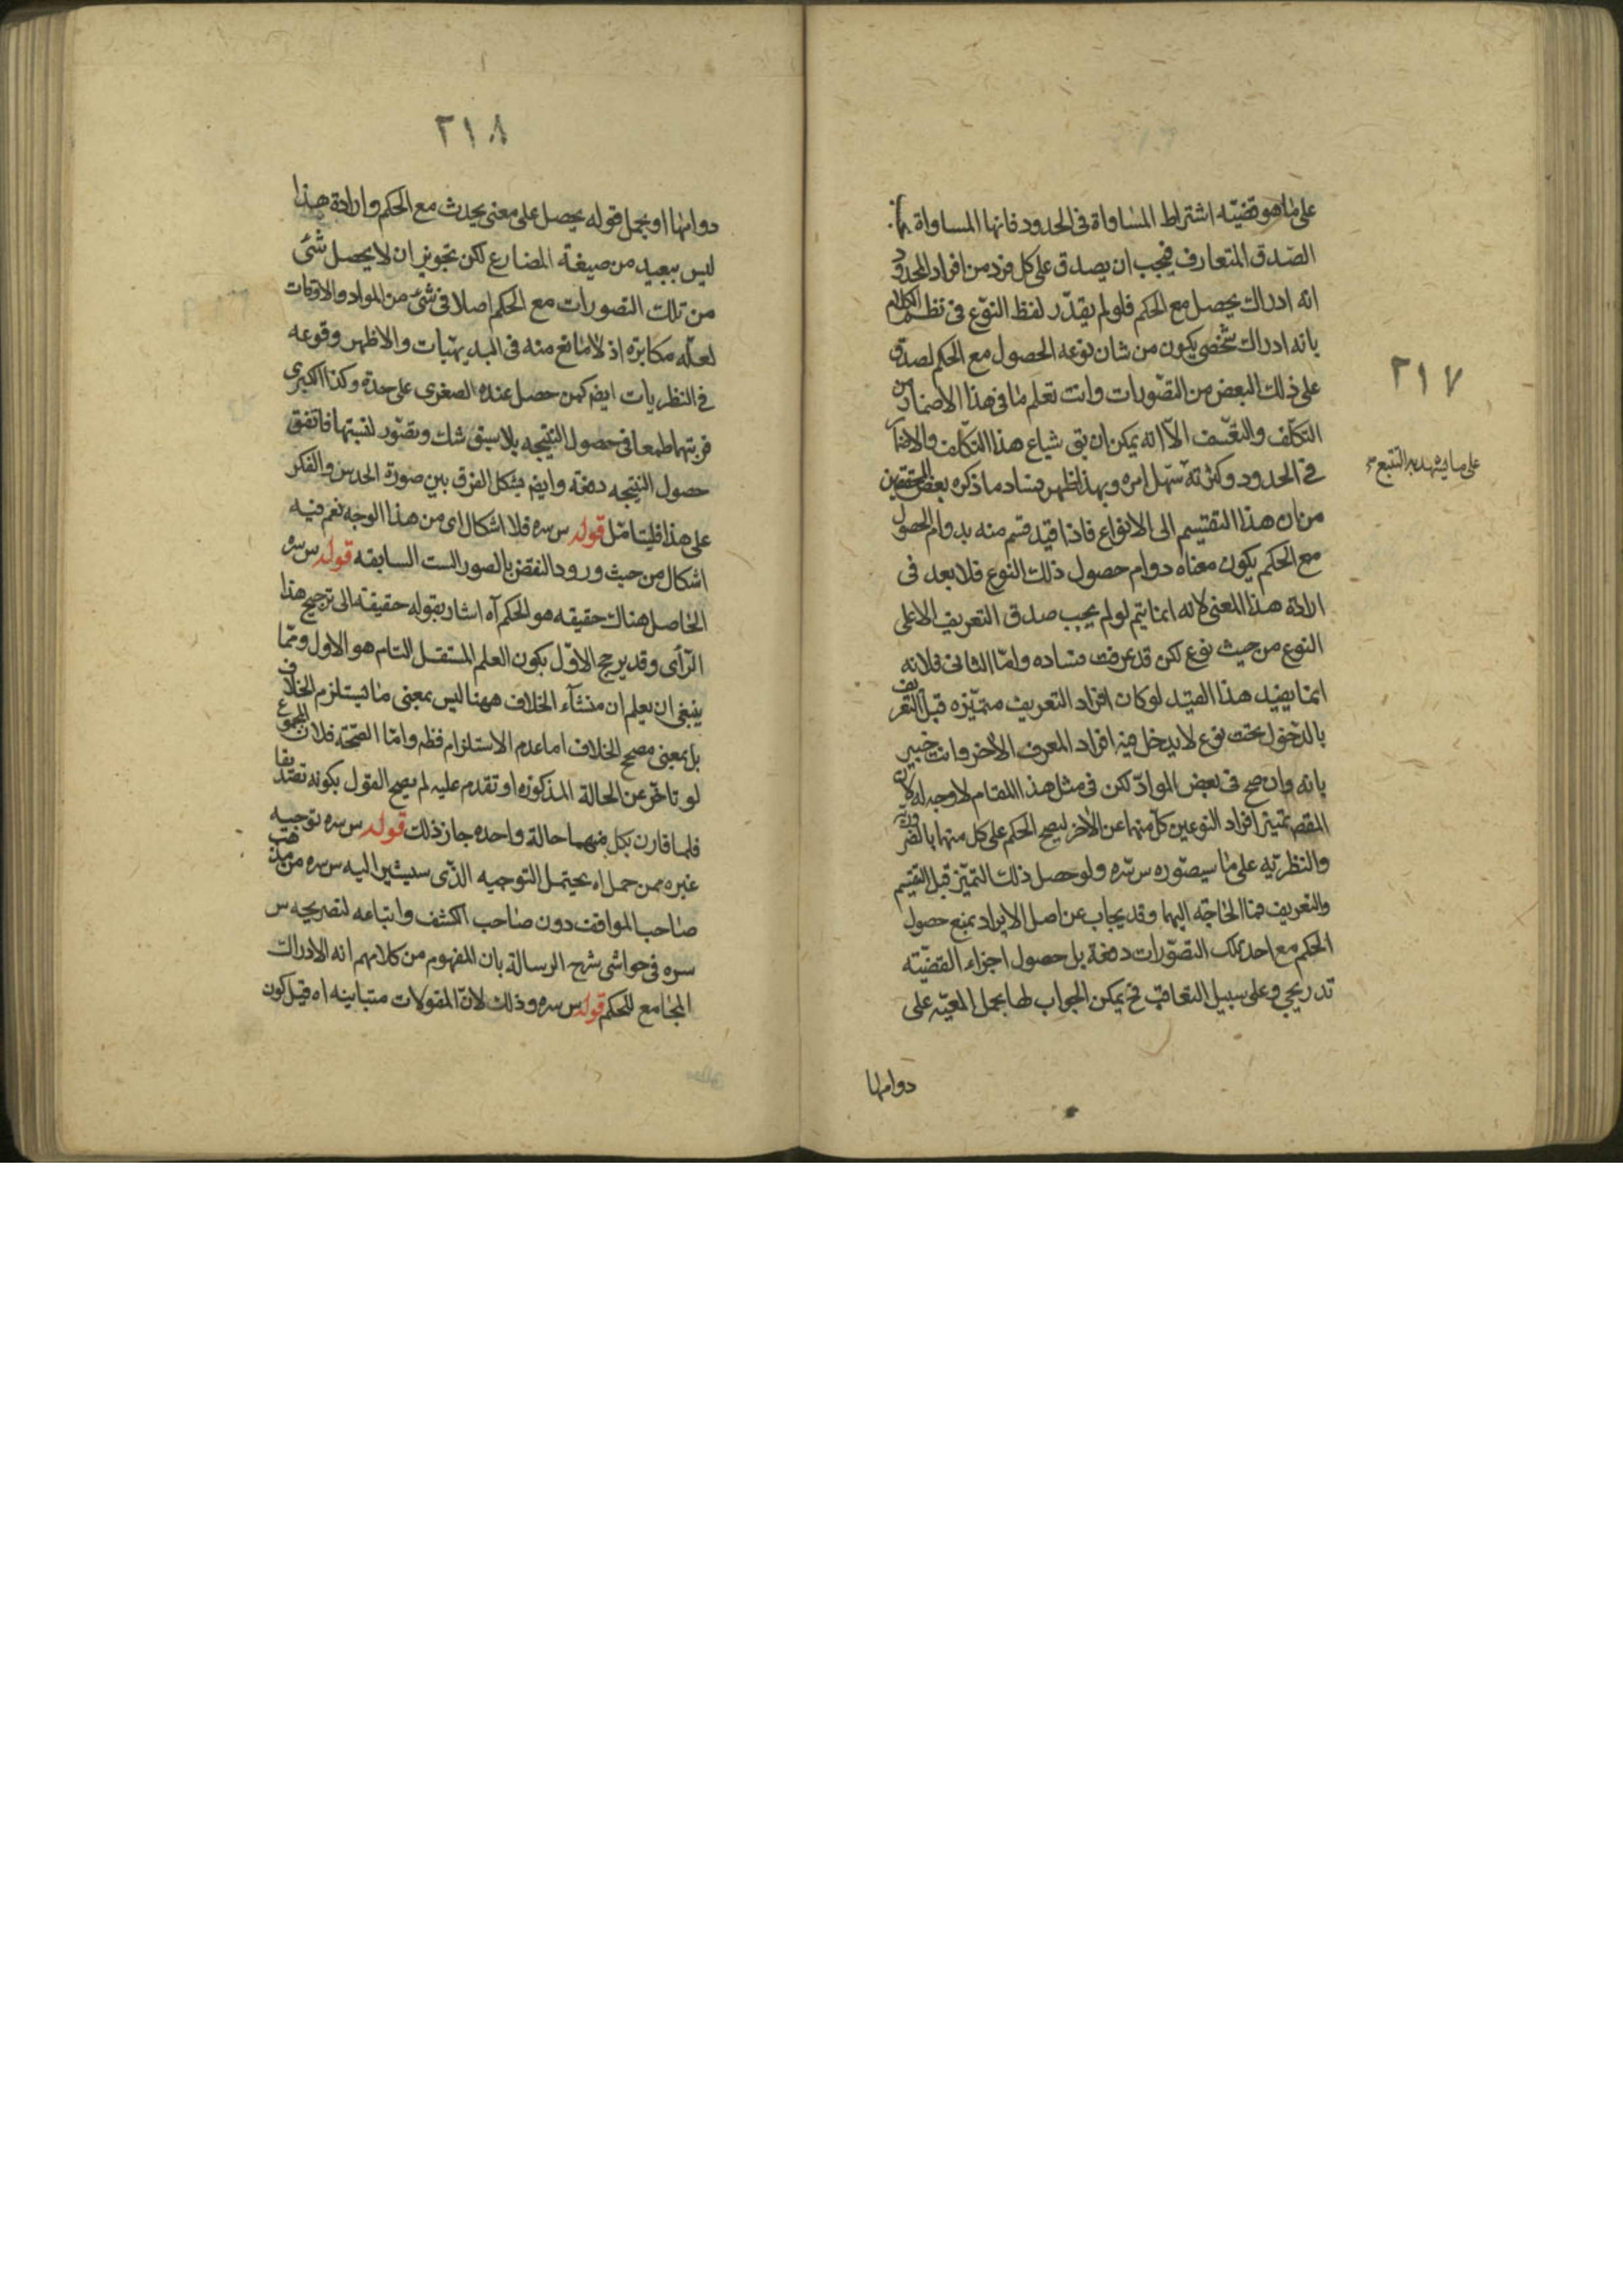 ٢١٧
على ما هو قضيته اشتراط المساواة فى الحدود فانها المساواة
الصدق المتعارف فيجب ان يصدق على كل فرد من افراد المحدود
انه ادراك يحصل مع الحكم فلو لم يقدّر لفظ النوع فى نظم الكلام
بانه ادراك شخصى يكون من شان نوعه الحصول مع الحكم لصدق
على ذلك البعض من التصورات وانت تعلم ما فى هذا الاضمار من
التكلف والتعسف الا انه يمكن ان بقى شياع هذا التكلف والاضمار
فى الحدود وكثرته سهل امره وبهذا ظهر فساد ما ذكره بعض المحققين
على ما يشهد به التتبع
من ان هذا التقسيم الى الانواع فاذا قيد قسم منه بدوام الحصول
مع الحكم يكون معناه دوام حصول ذلك النوع فلا بعد فى
ارادة هذا المعنى لانه انما يتم لو لم يجب صدق التعريف الا على
النوع من حيث نوع لكن قد عرفت فساده واما الثانى فلانه
انما يفيد هذا القيد لو كان افراد التعريف متميزه قبل التعريف
بالدخول تحت نوع لا يدخل فيه افراد المعرف الاخر وانت خبير
بانه وان صح فى بعض المواد لكن فى مثل هذا المقام لا وجه له لان
المقصم تميز افراد النوعين كل منهما عن الاخر ليصح الحكم على كل منها بالضرورية
والنظرية على ما سيصوره س سره ولو حصل ذلك التميز قبل التقسيم
والتعريف فما الحاجة اليهما وقد يجاب عن اصل الايراد بمنع حصول
الحكم مع احد تلك التصورات دفعة بل حصول اجزاء القضية
تدريجى وعلى سبيل التعاقب فح يمكن الجواب اما بحمل المعية على
دوامها
٢١٨
دوامها او بحمل قوله يحصل على معنى يحدث مع الحكم وارادة هذا
ليس ببعيد من صيغة المضارع لكن تجويز ان لا يحصل شئ
من تلك التصورات مع الحكم اصلا فى شئ من المواد والاوقات
لعله مكابره اذ لا مانع منه فى البديهيات والاظهر وقوعه
فى النظريات ايضم كمن حصل عنده الصغرى على حدة وكذا الكبرى
فرتبهما طمعا فى حصول النتيجه بلا سبق شك وتصور لنسبتها فاتفق
حصول النتيجه دفعة وايضم يشكل الفرق بين صورة الحدس والفكر
على هذا فليتامل قوله س سره فلا اشكال اى من هذا الوجه نعم فيه
اشكال من حيث ورود النقض بالصور الست السابقه قوله س سره
الحاصل هناك حقيقه هو الحكم آه اشار بقوله حقيقة الى ترجيح هذا
الرأى وقد يرجح الاول بكون العلم المستقل التام هو الاول ومما
ينبغى ان يعلم ان منشأء الخلاف ههنا ليس بمعنى ما يستلزم الخلاف
بل بمعنى مصحح الخلاف اما عدم الاستلزام فظم واما الصحة فلان المجموع
لو تاخر عن الحالة المذكوره او تقدم عليه لم يصح القول بكونه تصديقا
فلما قارن بكل منهما حالة واحده جاز ذلك قوله س سره توجيه
غيره ممن حمل اه يحتمل التوجيه الذى سيشير اليه س سره من مذهب
صاحب المواقف دون صاحب الكشف واتباعه لتصريحه س
سره فى حواشى شرح الرسالة بان المفهوم من كلامهم انه الادراك
المجامع للحكم قوله س سره وذلك لان المقولات متباينه اه قيل كون